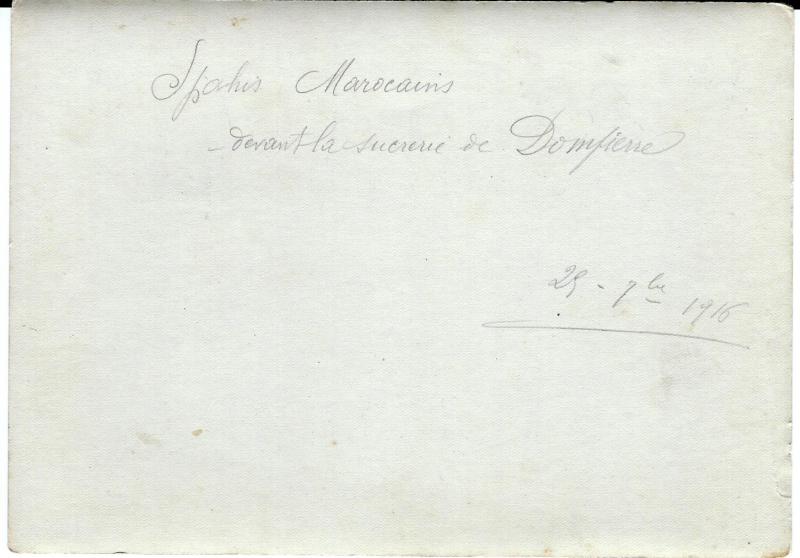 Spahis Marocains
devant la sucrerie de Dompierre
25 - 7bre 1916